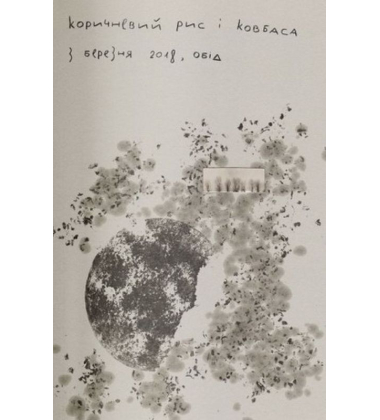 коричневий рис і ковбаса
3 березня 2018, обід